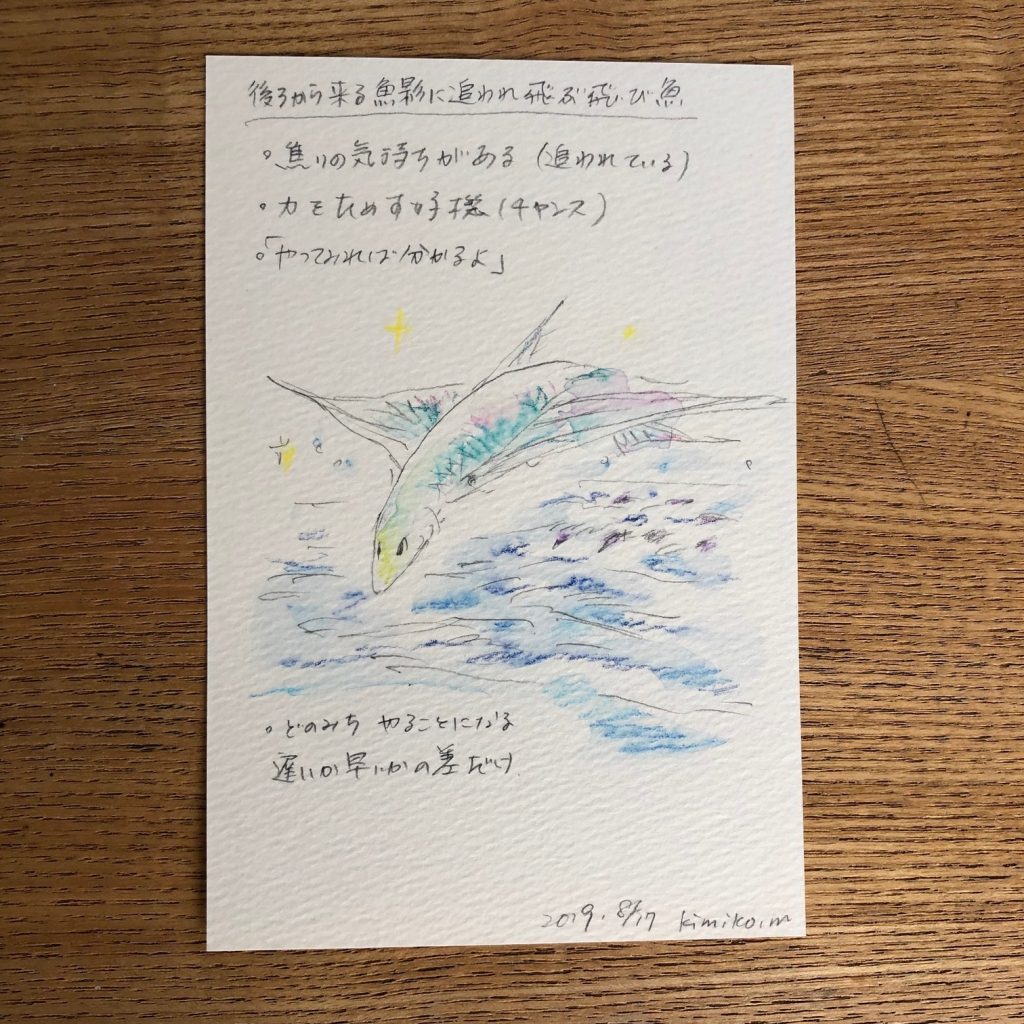 後ろから来る魚影に追われ飛ぶ飛び魚
。焦りの気持ちがある (追われている)
。力をためす好機 (チャンス)
。「やってみれば分かるよ」
。どのみち やることになる
遅いか早いかの差だけ.
2019. 8/17 kimiko.m